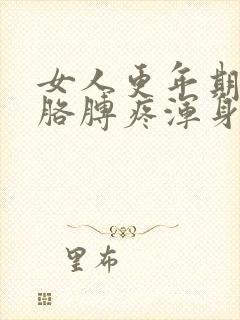 女人更年期
胳膊疼浑身
里布